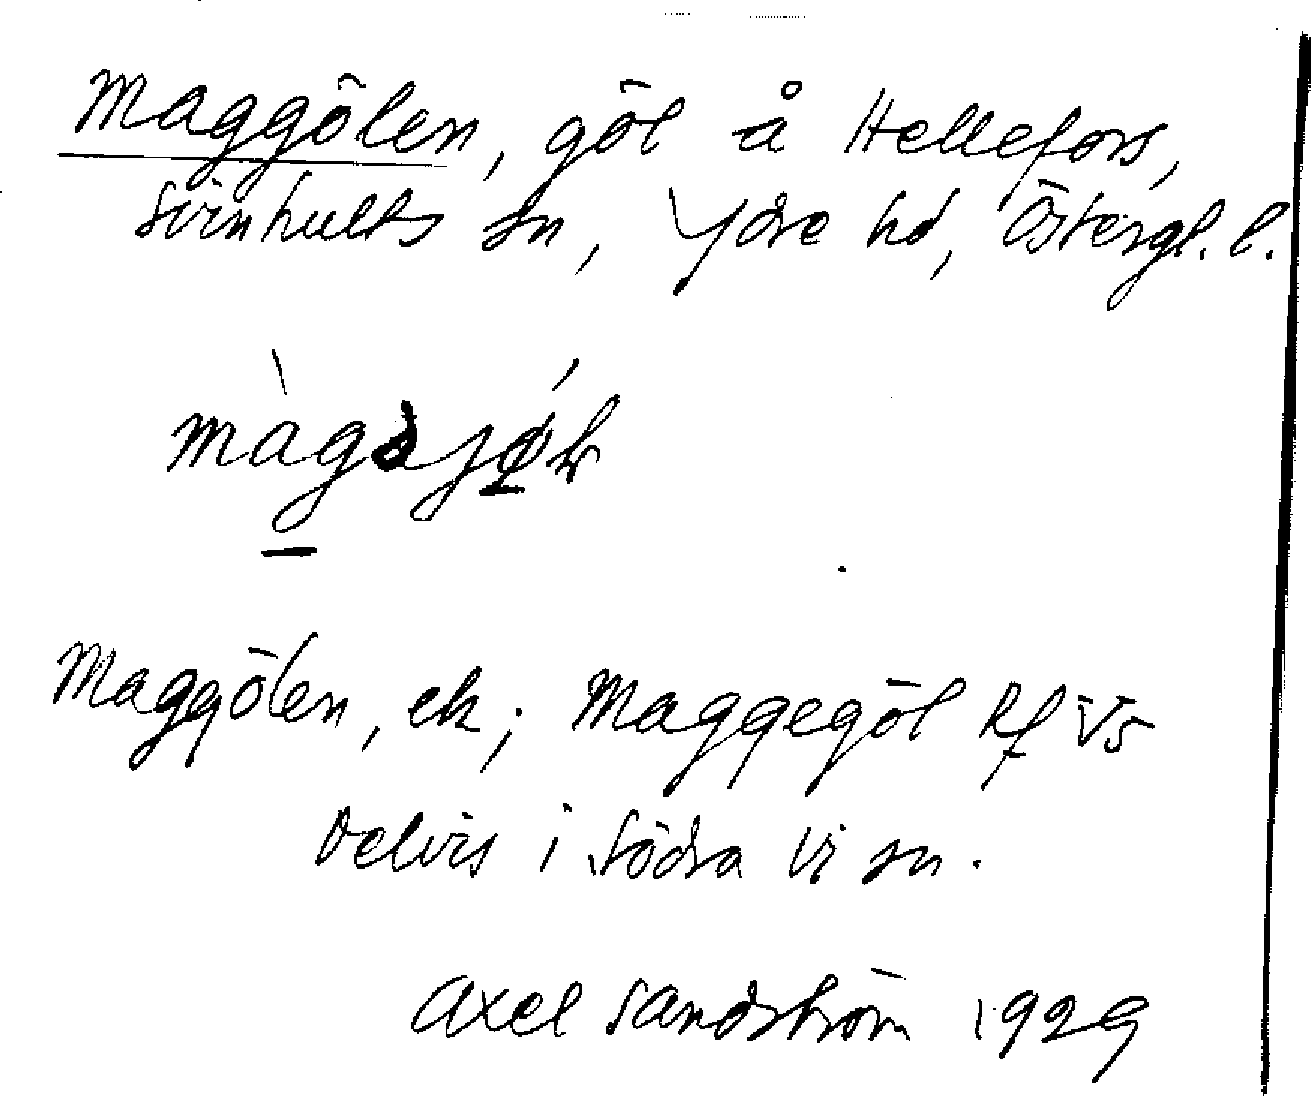 Maggölen, göl å Hellefors,
Svinhults sn, Ydre hd, Östergl. l.
Maggölen, ek; Maggegöl Rf V5
Delvis i Södra Vi sn.
Axel Sandström 1929